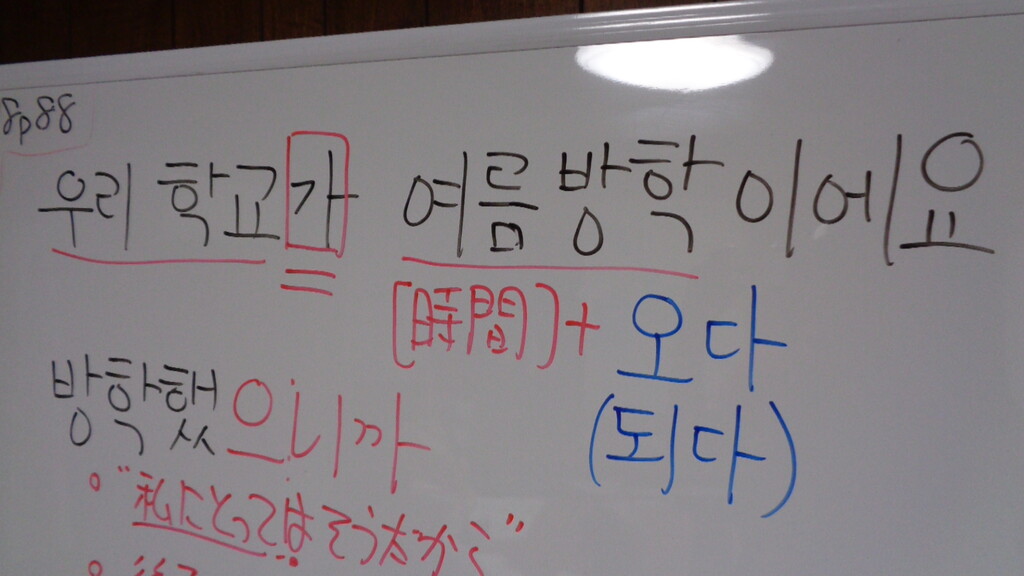 8p88
우리 학교가 여름방학이에요
[時間]+ 오다
(되다)
방학했으니까
。"私にとってはそうだから"